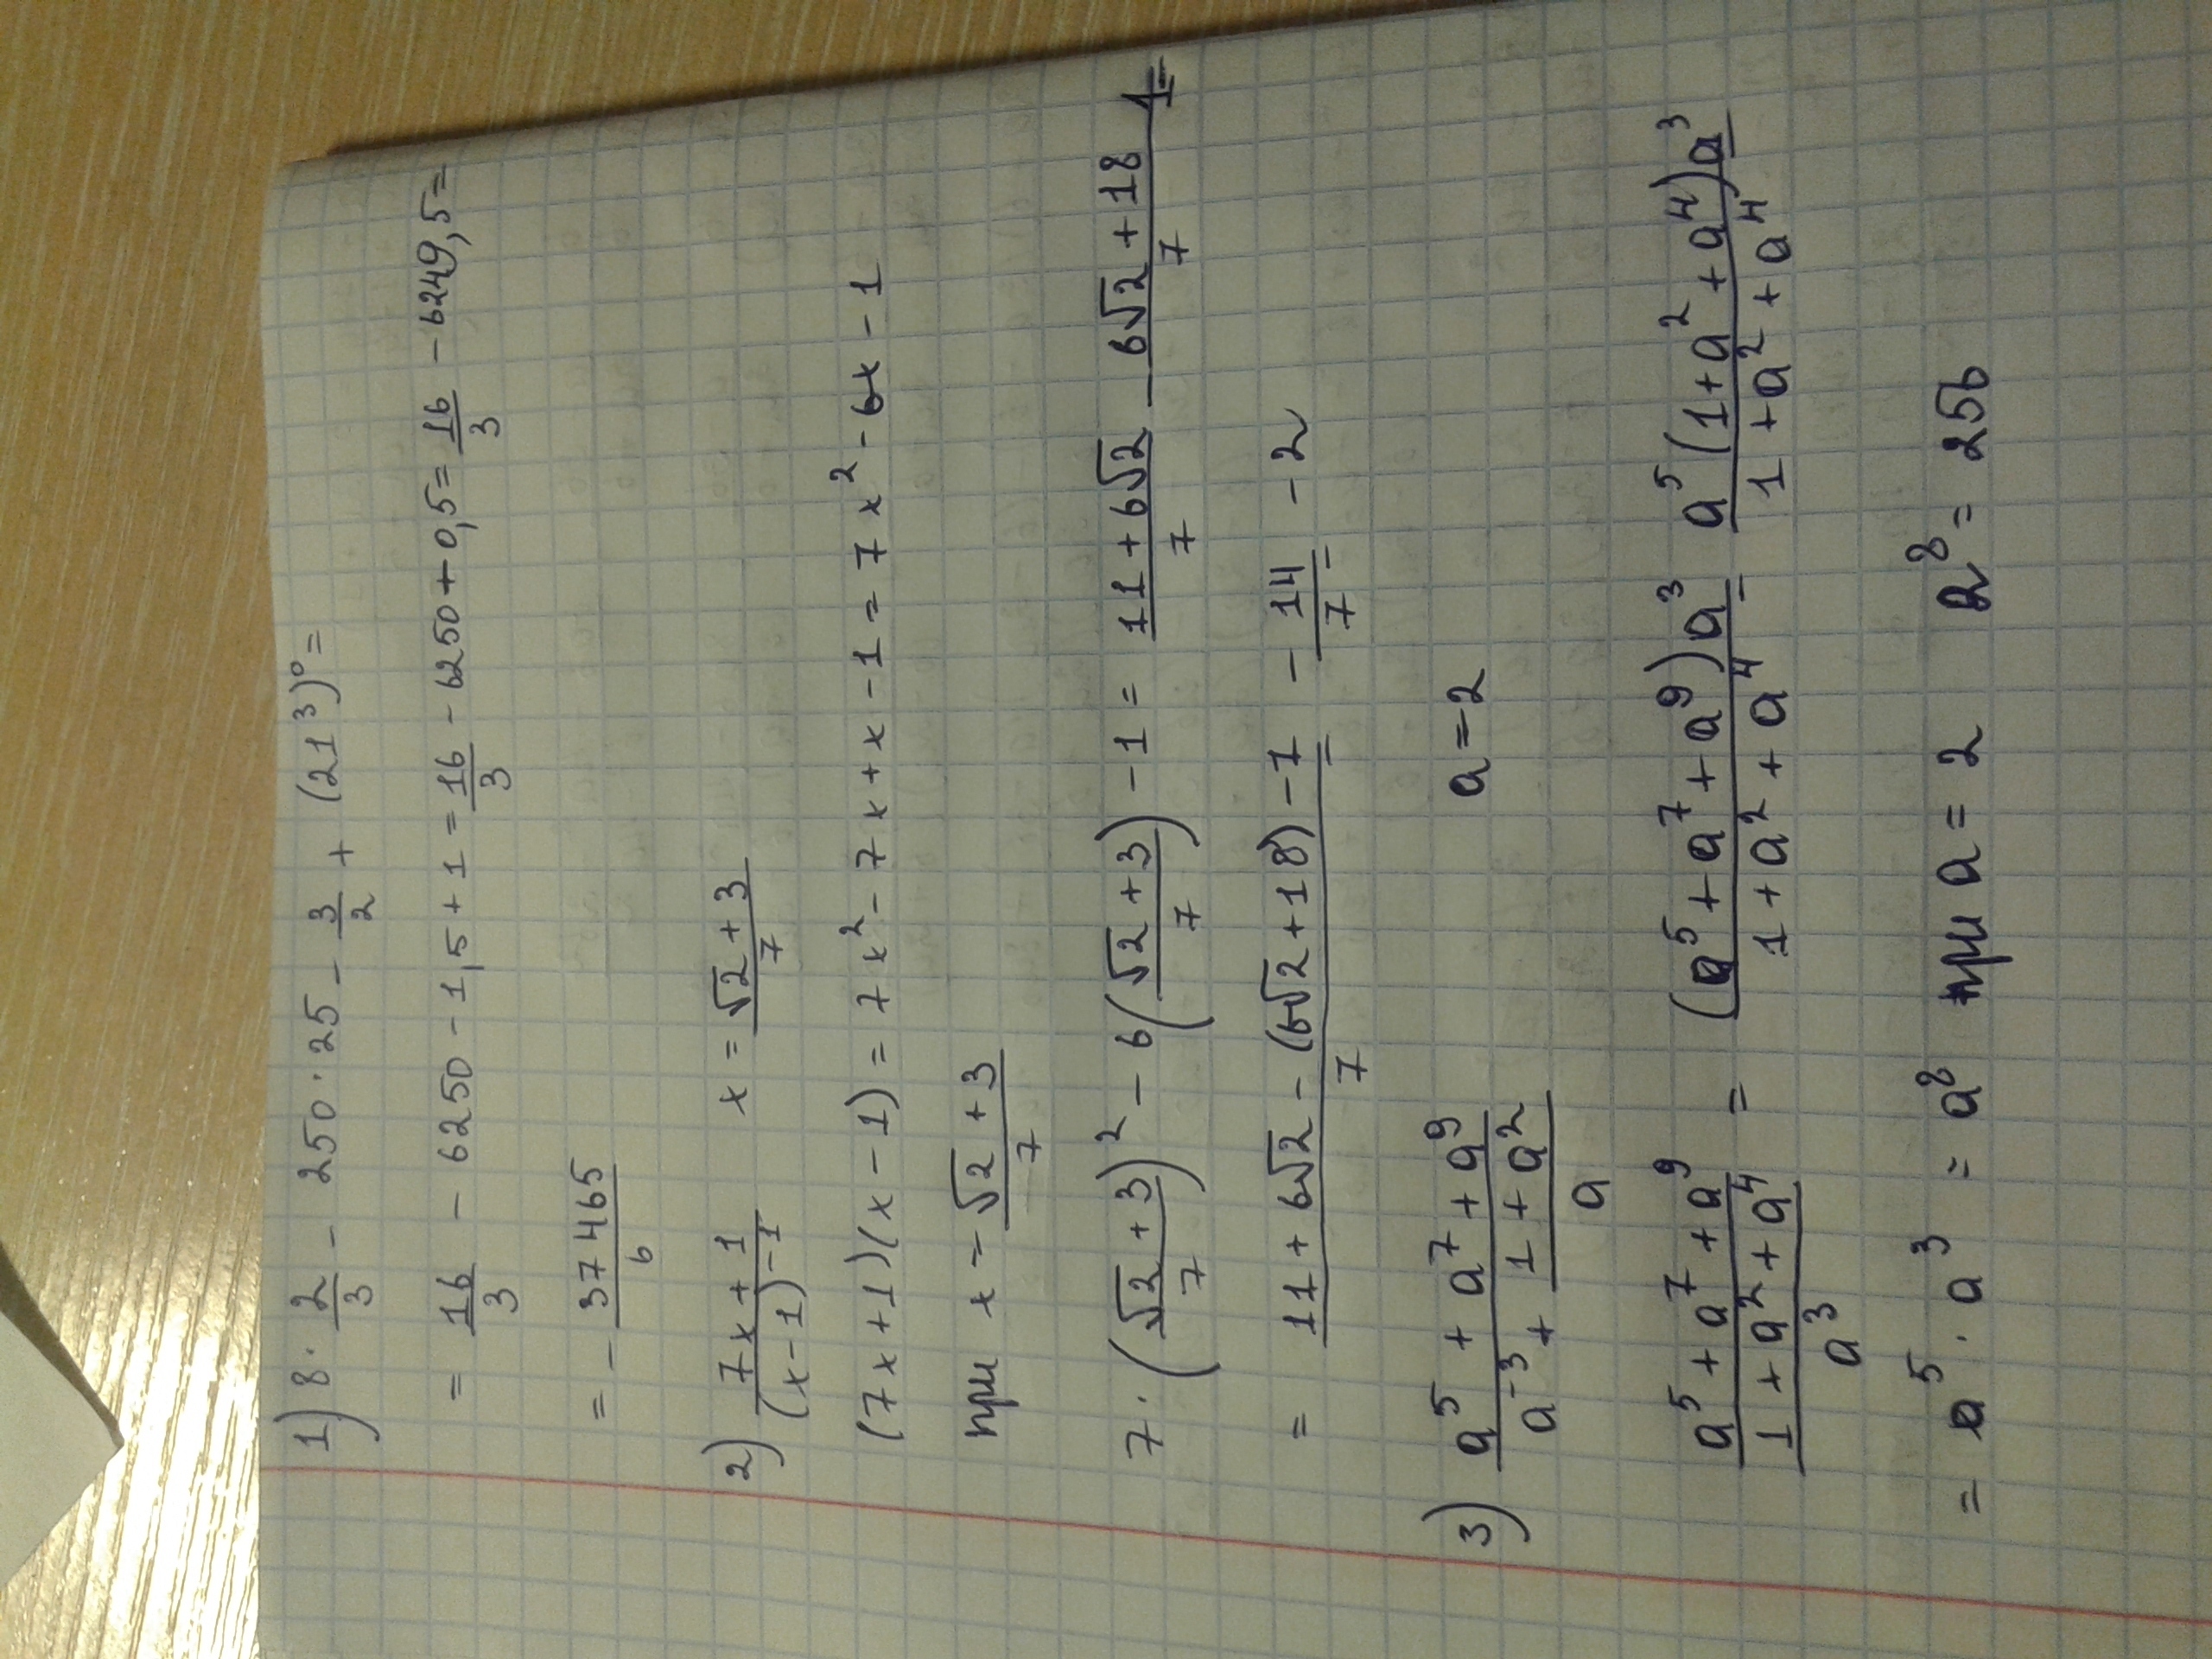 1) 8 · 2/3 - 250 · 25 - 3/2 + (21³)⁰ =
= 16/3 - 6250 - 1,5 + 1 = 16/3 - 6250 + 0,5 = 16/3 - 6249,5 =
= - 37465/6
2) (7x + 1)/(x - 1)⁻¹ x = (√2 + 3)/7
(7x + 1)(x - 1) = 7x² - 7x + x - 1 = 7x² - 6x - 1
при x = (√2 + 3)/7
7 · ((√2 + 3)/7)² - 6((√2 + 3)/7) - 1 = (11 + 6√2)/7 - (6√2 + 18)/7 - 1 =
= (11 + 6√2 - (6√2 + 18) - 7)/7 = - 14/7 = - 2
3) (a⁵ + a⁷ + a⁹)/(a⁻³ + (1 + a²)/a) a = 2
(a⁵ + a⁷ + a⁹)/((1 + a² + a⁴)/a³) = ((a⁵ + a⁷ + a⁹)a³)/(1 + a² + a⁴) = (a⁵(1 + a² + a⁴)a³)/(1 + a² + a⁴) =
= a⁵ · a³ = a⁸ при a = 2 2⁸ = 256